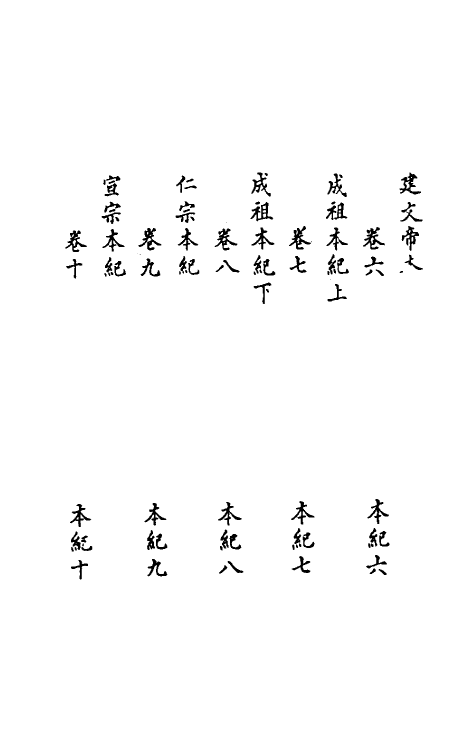 建文帝
卷六 本紀六
成祖本紀上
卷七 本紀七
成祖本紀下
卷八 本紀八
仁宗本紀
卷九 本紀九
宣宗本紀
卷十 本紀十